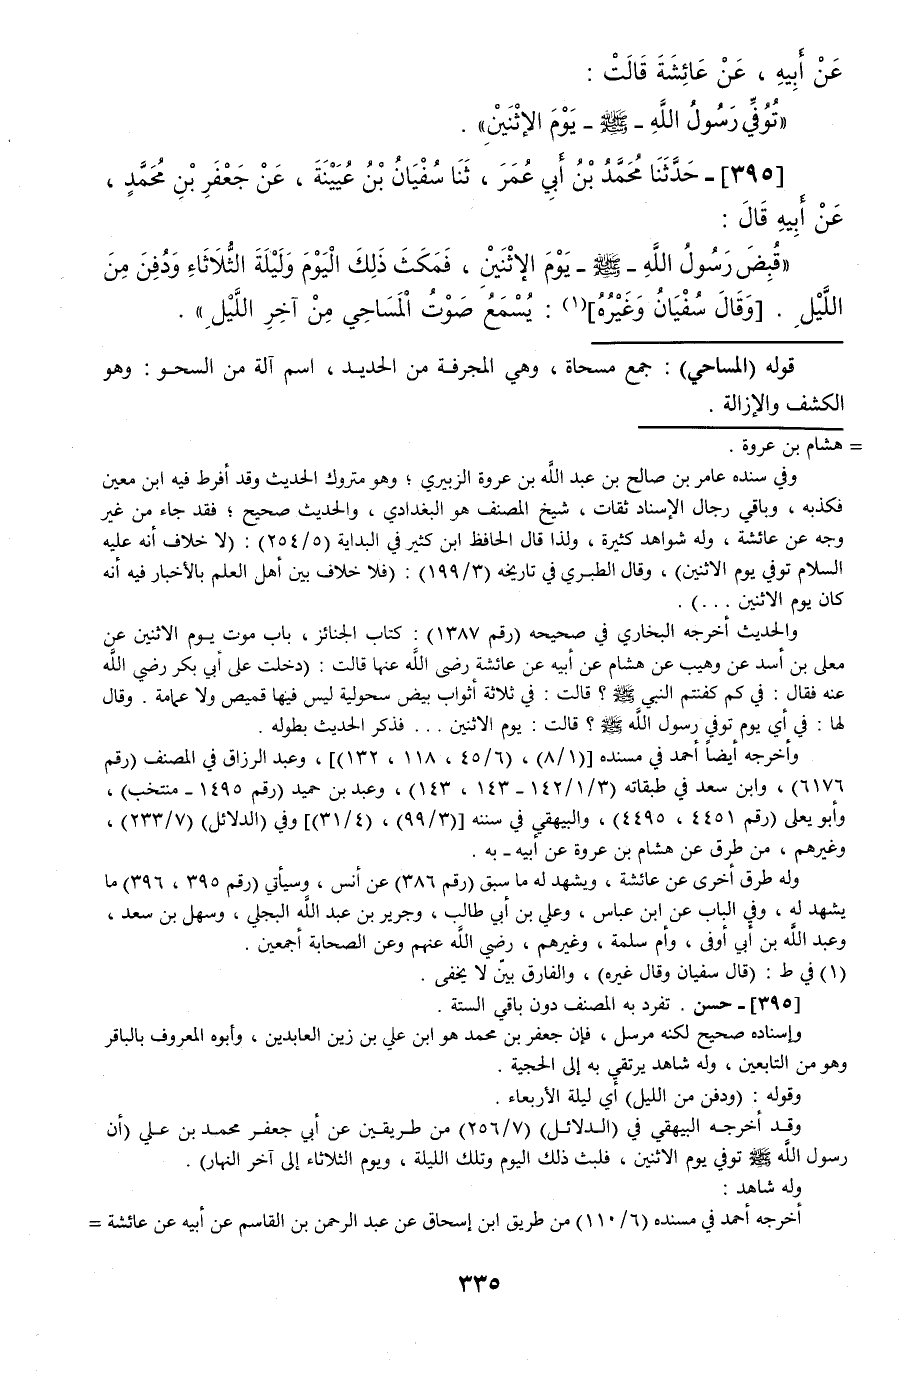 عَنْ أَبِيهِ ، عَنْ عَائِشَةَ قَالَتْ :
«تُوُفِّي رَسُولُ اللَّهِ ـ ﷺ ـ يَوْمَ الإِثْنَيْنِ» .
[٣٩٥] ـ حَدَّثَنَا مُحَمَّدُ بْنُ أَبِي عُمَرَ ، ثَنَا سُفْيَانُ بْنُ عُيَيْنَةَ ، عَنْ جَعْفَرِ بْنِ مُحَمَّدٍ ،
عَنْ أَبِيهِ قَالَ :
«قُبِضَ رَسُولُ اللَّهِ ـ ﷺ ـ يَوْمَ الإِثْنَيْنِ ، فَمَكَثَ ذَلِكَ الْيَوْمَ وَلَيْلَةَ الثُّلَاثَاءِ وَدُفِنَ مِنَ
اللَّيْلِ . [وَقَالَ سُفْيَانُ وَغَيْرُهُ](١) : يُسْمَعُ صَوْتُ الْمَسَاحِي مِنْ آخِرِ اللَّيْلِ» .
قوله (المساحي) : جمع مسحاة ، وهي المجرفة من الحديد ، اسم آلة من السحو : وهو
الكشف والإزالة .
= هشام بن عروة .
وفي سنده عامر بن صالح بن عبد اللَّه بن عروة الزبيري ؛ وهو متروك الحديث وقد أفرط فيه ابن معين
فكذبه ، وباقي رجال الإسناد ثقات ، شيخ المصنف هو البغدادي ، والحديث صحيح ؛ فقد جاء من غير
وجه عن عائشة ، وله شواهد كثيرة ، ولذا قال الحافظ ابن كثير في البداية (٢٥٤/٥) : (لا خلاف أنه عليه
السلام توفي يوم الاثنين) ، وقال الطبري في تاريخه (١٩٩/٣) : (فلا خلاف بين أهل العلم بالأخبار فيه أنه
كان يوم الاثنين ...) .
والحديث أخرجه البخاري في صحيحه (رقم ١٣٨٧) : كتاب الجنائز ، باب موت يـوم الاثنين عن
معلى بن أسد عن وهيب عن هشام عن أبيه عن عائشة رضى اللَّه عنها قالت : (دخلت على أبي بكر رضي اللَّه
عنه فقال : في كم كفنتم النبي ﷺ ؟ قالت : في ثلاثة أثواب بيض سحولية ليس فيها قميص ولا عمامة . وقال
لها : في أي يوم توفي رسول اللَّه ﷺ ؟ قالت : يوم الاثنين ... فذكر الحديث بطوله .
وأخرجه أيضاً أحمد في مسنده [(٨/١) ، (٤٥/٦ ، ١١٨ ، ١٣٢)] ، وعبد الرزاق في المصنف (رقم
٦١٧٦) ، وابن سعد في طبقاته (١٤٢/١/٣ ـ ١٤٣ ، ١٤٣) ، وعبد بن حميد (رقم ١٤٩٥ ـ منتخب) ،
وأبو يعلى (رقم ٤٤٥١ ، ٤٤٩٥) ، والبيهقي في سننه [(٩٩/٣) ، (٣١/٤)] وفي (الدلائل) (٢٣٣/٧) ،
وغيرهم ، من طرق عن هشام بن عروة عن أبيه ـ به .
وله طرق أخرى عن عائشة ، ويشهد له ما سبق (رقم ٣٨٦) عن أنس ، وسيأتي (رقم ٣٩٥ ، ٣٩٦) ما
يشهد له ، وفي الباب عن ابن عباس ، وعلي بن أبي طالب ، وجرير بن عبد اللَّه البجلي ، وسهل بن سعد ،
وعبد اللَّه بن أبي أوفى ، وأم سلمة ، وغيرهم ، رضي اللَّه عنهم وعن الصحابة أجمعين .
(١) في ط : (قال سفيان وقال غيره) ، والفارق بيّن لا يخفى .
[٣٩٥] ـ حسن . تفرد به المصنف دون باقي الستة .
وإسناده صحيح لكنه مرسل ، فإن جعفر بن محمد هو ابن علي بن زين العابدين ، وأبوه المعروف بالباقر
وهو من التابعين ، وله شاهد يرتقي به إلى الحجية .
وقوله : (ودفن من الليل) أي ليلة الأربعاء .
وقـد أخرجـه البيهقي في (الـدلائـل) (٢٥٦/٧) من طـريقـين عن أبي جعفـر محمـد بن عـلي (أن
رسول اللَّه ﷺ توفي يوم الاثنين ، فلبث ذلك اليوم وتلك الليلة ، ويوم الثلاثاء إلى آخر النهار) .
وله شاهد :
أخرجه أحمد في مسنده (١١٠/٦) من طريق ابن إسحاق عن عبد الرحمن بن القاسم عن أبيه عن عائشة =
٣٣٥